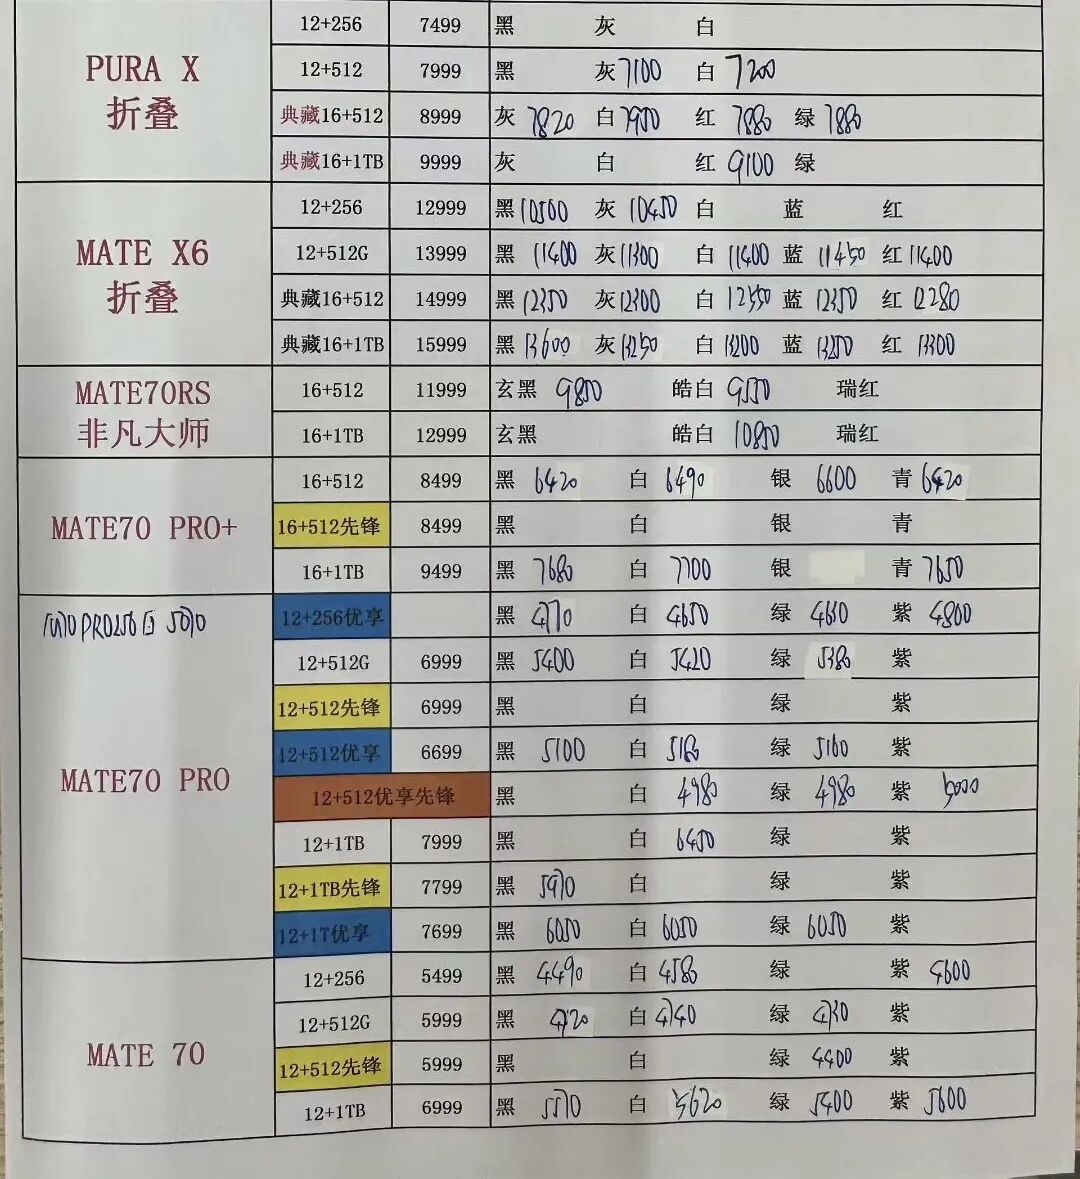 12+256 7499 黑 灰 白
PURA X
折叠
12+512 7999 黑 灰 7100 白 7200
典藏16+512 8999 灰 7820 白 7950 红 7880 绿 7880
典藏16+1TB 9999 灰 白 红 9100 绿
12+256 12999 黑 10500 灰 10450 白 蓝 红
MATE X6
折叠
12+512G 13999 黑 11400 灰 11300 白 11400 蓝 11450 红 11400
典藏16+512 14999 黑 12350 灰 12300 白 12350 蓝 12350 红 12280
典藏16+1TB 15999 黑 13600 灰 13250 白 13200 蓝 13250 红 13300
MATE70RS
非凡大师
16+512 11999 玄黑 9850 皓白 9550 瑞红
16+1TB 12999 玄黑 皓白 10850 瑞红
MATE70 PRO+
16+512 8499 黑 6420 白 6490 银 6600 青 6420
16+512先锋 8499 黑 白 银 青
16+1TB 9499 黑 7680 白 7700 银 青 7650
PRO256白 5070
12+256优享 黑 4770 白 4650 绿 4650 紫 4800
12+512G 6999 黑 5400 白 5420 绿 5380 紫
12+512先锋 6999 黑 白 绿 紫
MATE70 PRO
12+512优享 6699 黑 5100 白 5180 绿 5160 紫
12+512优享先锋 黑 白 4980 绿 4980 紫 5000
12+1TB 7999 黑 白 6450 绿 紫
12+1TB先锋 7799 黑 5970 白 绿 紫
12+1T优享 7699 黑 6050 白 6050 绿 6050 紫
12+256 5499 黑 4490 白 4580 绿 紫 4600
MATE 70
12+512G 5999 黑 4720 白 4740 绿 4730 紫
12+512先锋 5999 黑 白 绿 4400 紫
12+1TB 6999 黑 5570 白 5620 绿 5400 紫 5600